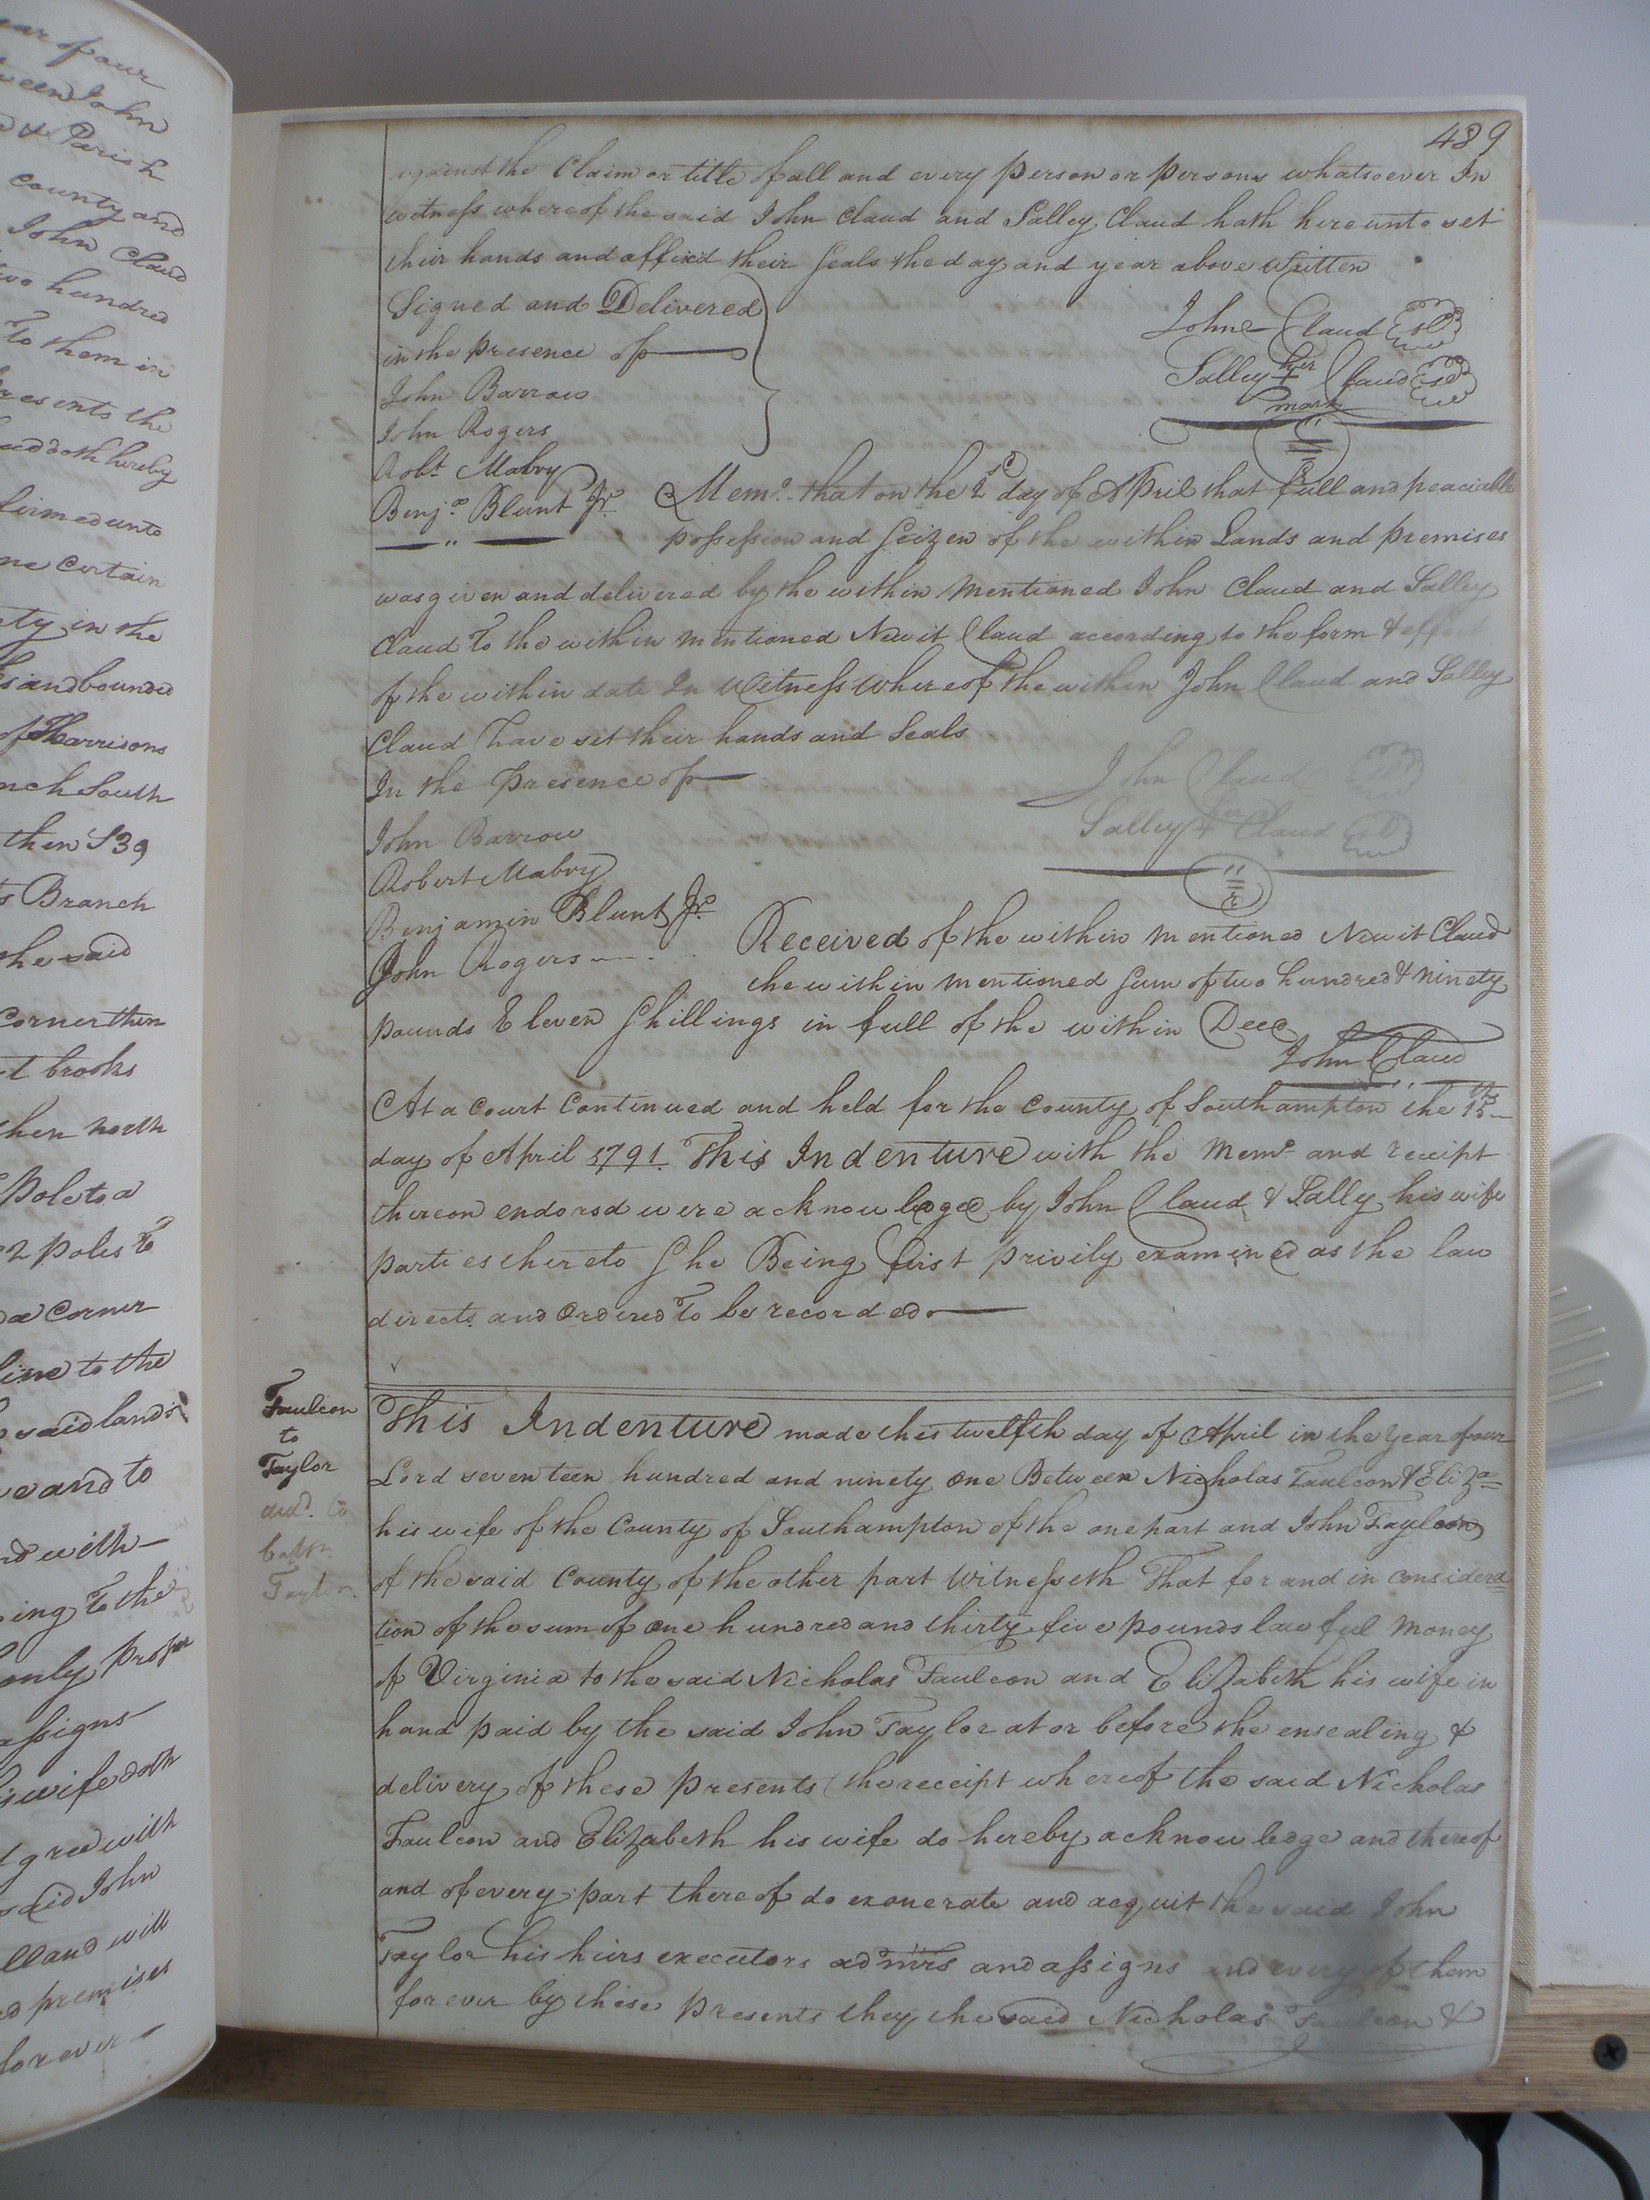 ar of our
ween John
d & Parish
County and
John Claud
two hundred
To them in
presents the
and doth hereby
firmed unto
ne Certain
ty in the
and bounded
of Harrisons
nch South
then S39
s Branch
he said
Corner then
t brooks
then north
Pole to a
2 poles To
a Corner
line to the
said lands
e and to
nd with
ing To the
only proper
assigns
his wife doth
t gree with
said John
ll and will
d premises
forever
489
against the Claim or title of all and every person or persons whatsoever In
witness whereof the said John Claud and Salley Claud hath hereunto set
their hands and affixd their Seals the day and year above written
Signed and Delivered
in the presence of
John Claud Sl
John Barrow
Salley her + mark Claud Sl
John Rogers
Robt. Mabry
Benja. Blunt Jr.
Memo. that on the 2d day of April that full and peaciable
possession and Seizen of the within Lands and premises
was given and delivered by the within mentioned John Claud and Salley
Claud To the within mentioned Newit Claud according to the form & effect
of the within date In Witness Whereof the within John Claud and Salley
Claud have set their hands and Seals
In the presence of
John Claud Sl
John Barrow
Salley her + Claud Sl
Robert Mabry
Benjamin Blunt Jr.
John Rogers
Received of the within mentioned Newit Claud
the within mentioned Sum of two hundred & ninety
pounds Eleven Shillings in full of the within Deed
John Claud
At a Court Continued and held for the County of Southampton the 15th
day of April 1791. This Indenture with the Memo. and receipt
thereon endorsd were acknowledged by John Claud & Sally his wife
parties thereto She Being first privily examined as the law
directs and Ordered To be recorded
Faulcon
to
Taylor
This Indenture made this twelfth day of April in the year of our
Lord seventeen hundred and ninety one Between Nicholas Faulcon & Eliza
his wife of the County of Southampton of the one part and John Taylor
of the said County of the other part Witnesseth That for and in considera
tion of the sum of one hundred and thirty five pounds lawful money
of Virginia to the said Nicholas Faulcon and Elizabeth his wife in
hand paid by the said John Taylor at or before the ensealing &
delivery of these presents (the receipt whereof the said Nicholas
Faulcon and Elizabeth his wife do hereby acknowledge and thereof
and of every part thereof do exonerate and acquit the said John
Taylor his heirs executors admrs and assigns and every of them
forever by these presents they the said Nicholas Faulcon &